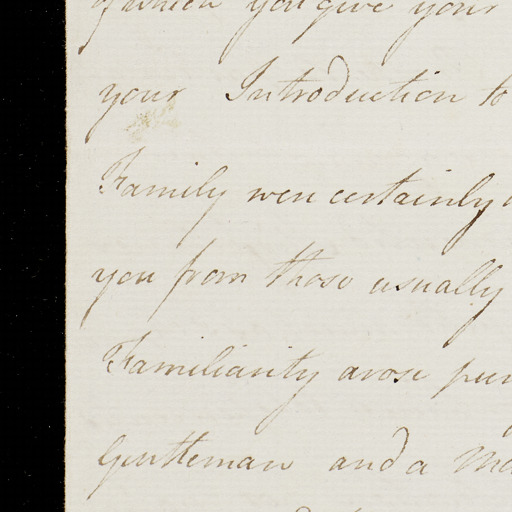 of which you give your
your Introduction to
Family were certainly
you from those usually
Familiarity arose
Gentleman and a